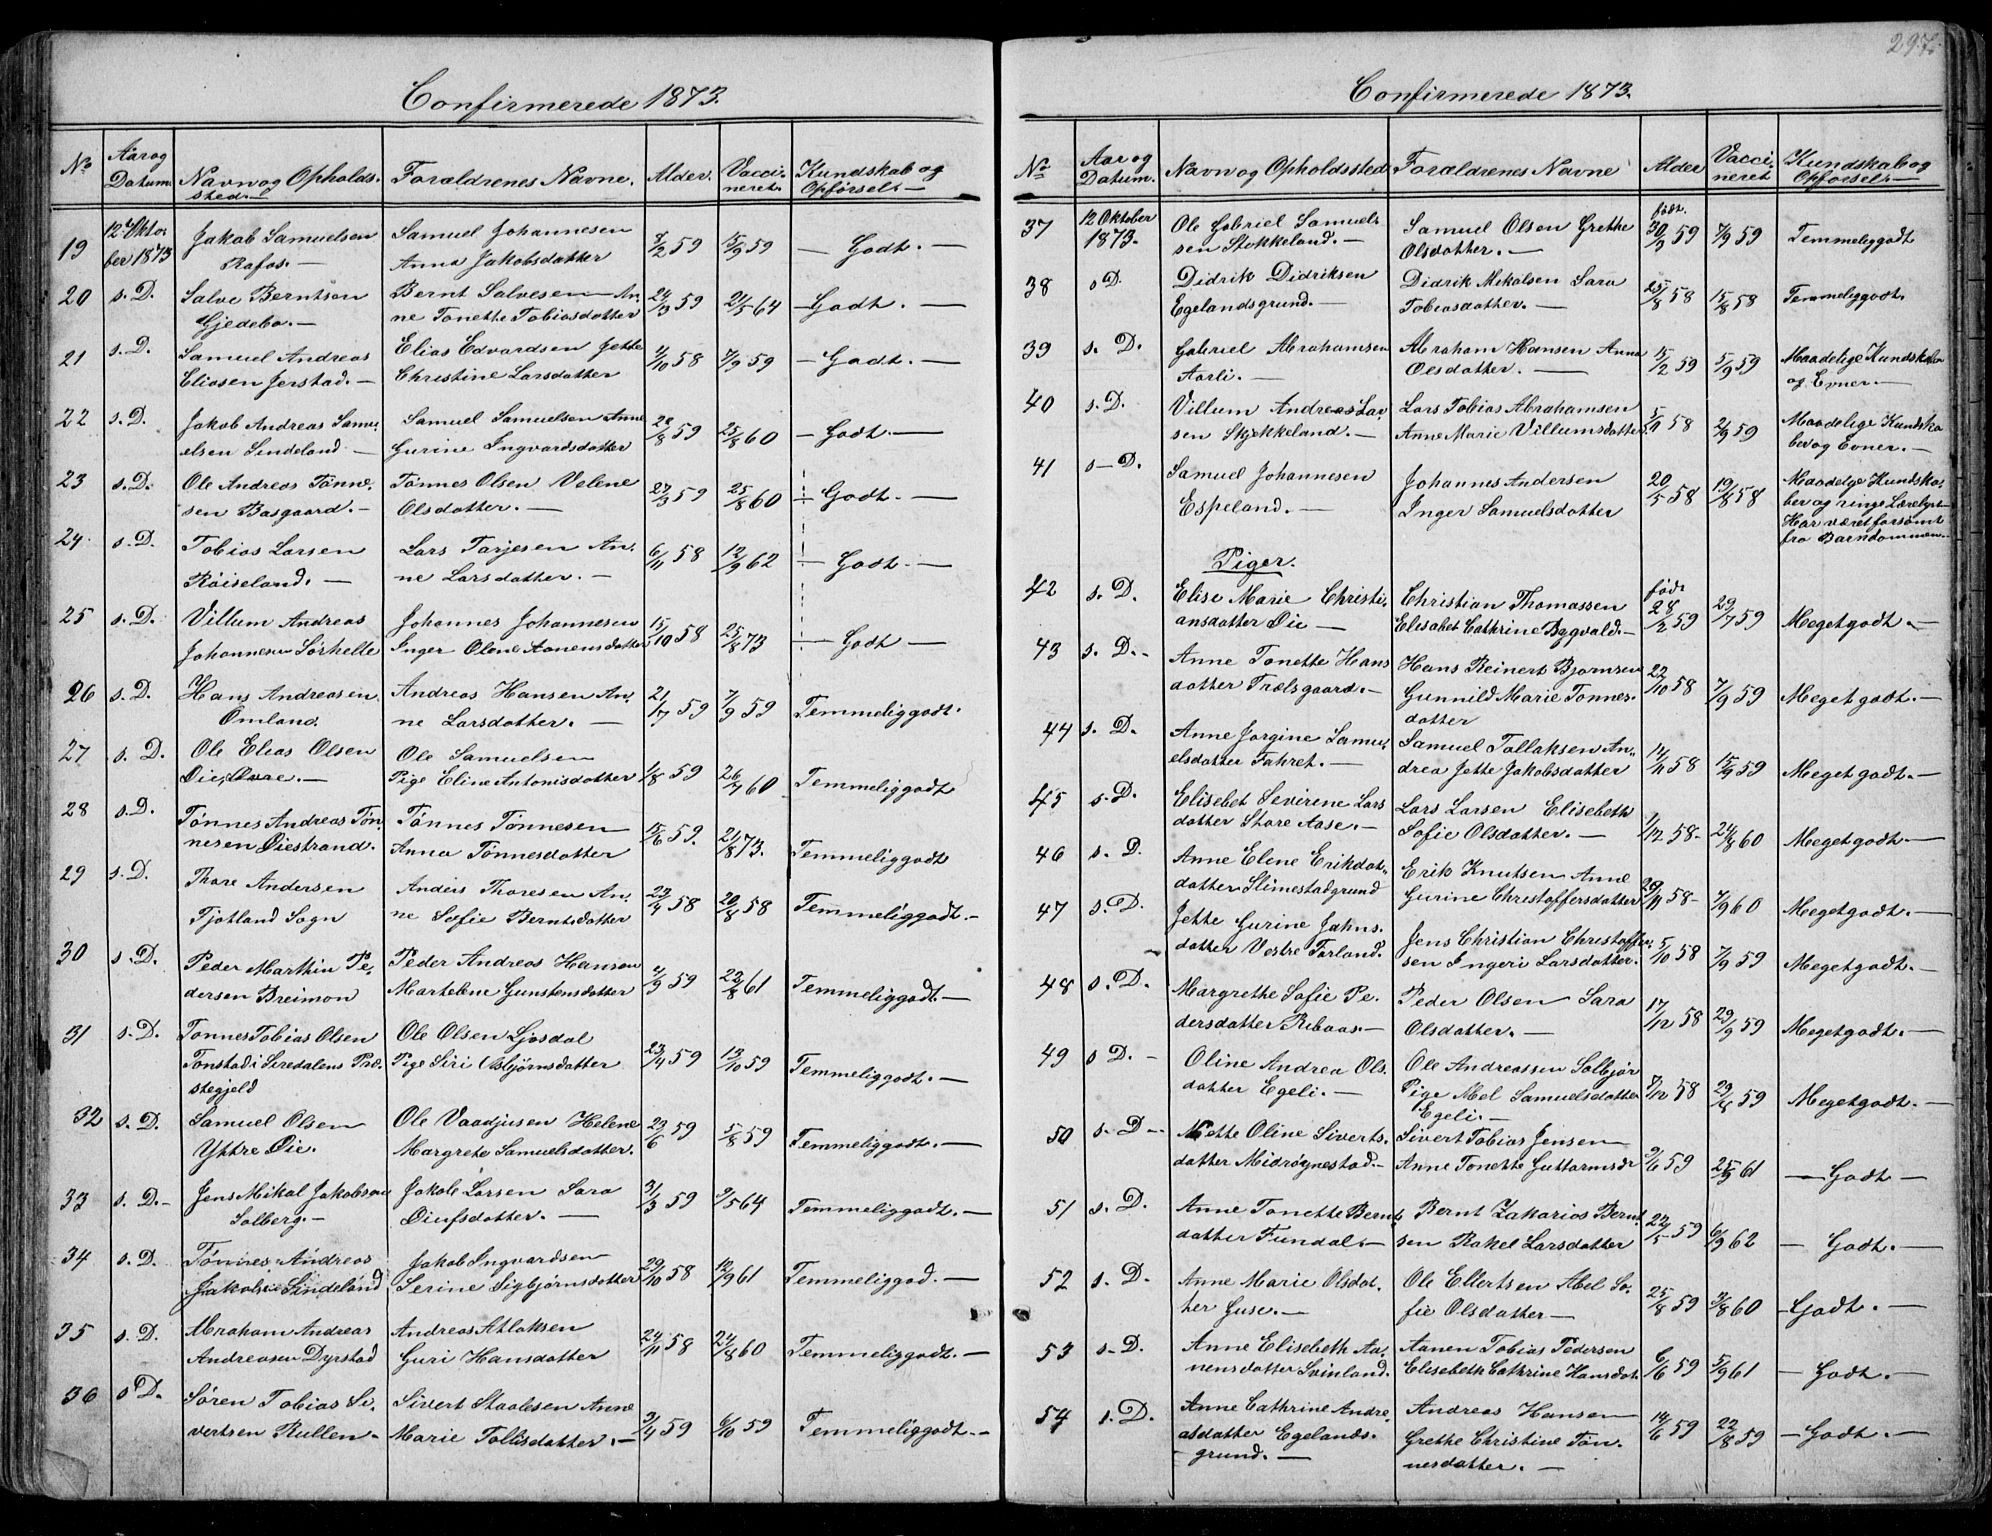 297.
Confirmerede 1873.
No
Aar og Datum.
Navn og Opholds-sted.
Forældrenes Navne.
Alder.
Vacci-neret.
Kundskab og Opførsel.
19 12te Oktober 1873 Jakob Samuelsen Samuel Johannesen 59 15/9 59 — Godt. —
Rafos. — Anna Jakobsdatter
20 s. D. Salve Berntsen Bernt Salvesen An- 24/3 59 21/5 64 — Godt. —
Gjedebo. — ne Tonette Tobiasdatter
21 s. D. Samuel Andreas Elias Edvardsen Jette 58 7/9 59 — Godt. —
Eliasen Jerstad. — Christine Larsdatter
22 s. D. Jakob Andreas Samu- Samuel Samuelsen Anne 59 25/8 60 — Godt. —
elsen Sindeland — Gurine Ingvardsdatter
23 s. D. Ole Andreas Tønne- Tønnes Olsen Velene 27/3 59 25/8 60 — Godt. —
sen Basgaard. — Olsdatter. —
24. s. D. Tobias Larsen Lars Tarjesen An- 6/11 58 12/9 62 — Godt. —
Røiseland. — ne Larsdatter. —
25 s. D. Villum Andreas Johannes Johannesen 15/10 58 25/8 73 — Godt —
Johannesen Sørhelle Inger Olene Aanensdatter
26 s. D. Hans Andreasen Andreas Hansen An- 21/7 59 7/9 59 Temmeliggodt.
Omland. ne Larsdatter. —
27 s. D. Ole Elias Olsen Ole Samuelsen 1/8 59 26/7 60 Temmeliggodt
Øie, Øvre. — Pige Eline Antonisdatter
28 s. D. Tønnes Andreas Tøn- Tønnes Tønnesen 15/6 59. 21/8 73. Temmeliggodt
nesen Øiestrand. Anna Tønnesdatter
29 s. D. Thore Andersen Anders Thoresen An- 58 20/8 58 Temmeliggodt. —
Fjotland Sogn ne Sofie Berntsdatter
30 s. D. Peder Marthin Pe- Peder Andreas Hansen 59 22/8 61 Temmeliggodt. —
dersen Breimon Martelene Gunstensdatter
31 s. D. Tonnes Tobias Olsen Ole Olsen Ljosdal 23/4 59 13/10 59 Temmeliggodt. —
Tonstad i Siredalens Præ- Pige Siri Asbjørnsdatter
stegjeld
32 s. D. Samuel Olsen Ole Vaadjusen Helene 29/6 59 5/8 59 Temmeliggodt. —
Yttre Øie. Margrete Samuelsdatter.
33 s. D. — Jens Mikal Jakobsen Jakob Larsen Sara 31/3 59 9/5 64 Temmeliggodt. —
Solberg. — Oiufsdatter. —
34 s. D. Tønnes Andreas Jakob Ingvardsen 29/10 58 12/9 61 Temmeliggod. —
Jakobsen Sindeland Serine Sigbjørnsdatter
35 s. D. Abraham Andreas Andreas Atlaksen 24/11 58 24/8 60 Temmeliggodt. —
Andreasen Dyrstad Guri Hansdatter
36 s D. Søren Tobias Si- Sivert Staalesen Anne 3/4 59 6/10 59 Temmeliggodt. —
vertsen Rullen — Marie Tollisdatter. —
Confirmerede 1873.
No
Aar og Datum.
Navn og Opholdssted
Forældrenes Navne
Alder
Vacci-neret
Kundskab og Opførsel. —
37 12 Oktober 1873. Ole Gabriel Samuel- Samuel Olsen Grethe født. 30/9 59 7/9 59 Temmeliggodt
sen Stokkeland. — Olsdatter. —
38 s D. Didrik Didriksen Didrik Mikalsen Sara 25/8 58 15/8 58 Temmeliggodt.
Egelandsgrund. — Tobiasdatter. —
39 s. D. Gabriel Abrahamsen Abraham Hansen Anna 15/2 59 5/9 59 Maadelige Kundskaber
Aarli. — Olsdatter. — og Evner. —
40 s. D. Villum Andreas Lar- Lars Tobias Abrahamsen 5/11 58 2/9 59 Maadelige Kundska-
sen Skjekkeland. — Anne Marie Villumsdatter ber og Evner. —
41 s — D. Samuel Johannesen Johannes Andersen 20/5 58 19/8 58 Maadelge Kundska-
Espeland. — Inger Samuelsdatter ber og ringe Lærelyst
Har været forsømt
fra Barndommen. —
Piger.
42 s. D. Elise Marie Christi- Christian Thomassen født 28/2 59 29/7 59 Megetgodt. —
ansdatter Øie — Elisabet Cathrine Bygvald. —
43 s. D. — Anne Tonette Hans Hans Reinert Bjørnsen 22/10 58 7/9 59 Megetgodt. —
datter Trælsgaard. — Gunnild Marie Tønnes-
datter
44 s. D. Anne Jorgine Samu- Samuel Tollaksen An- 14/11 58 15/9 59 Megetgodt. —
elsdatter Fahret. — drea Jette Jakobsdatter
45 s. D. Elisebet Severine Lars Lars Larsen Elisebeth 1/12 58 — 24/8 60 Megetgodt. —
datter Store Aase. — Sofie Olsdatter. —
46 s. D. Anne Elene Erikdat- Erik Knutsen Anne 29/11 58 — 7/9 60 Megetgodt. —
datter Slimestadgrund Gurine Christoffersdatter
47 s. D. Jette Gurine Jahns- Jens Christian Christoffer- 5/10 58 7/9 59 Megetgodt. —
datter Vestre Farland. sen Ingeri Larsdatter.
48 s. D. Margrethe Sofie Pe- Peder Olsen Sara 17/12 58 29/9 59 Megetgodt. —
dersdatter Rebaas — Olsdatter. —
49 s D. — Oline Andrea Ols- Ole Andreassen Solbjør 7/12 58 59 Megetgodt. —
datter Egeli. — Pige Mel Samuelsdatter
Egeli. —
50 s. D — Mette Oline Siverts- Sivert Tobias Jensen 9/6 59 25/9 61 — Godt —
datter Midrøgnestad. — Anne Tonette Guttormsdr
51 s. D. Anne Tonette Bernt- Bernt Zakarias Bernt 22/5 59 6/9 62 — Godt. —
datter Fundal. — sen Rakel Larsdatter
52 s. D. Anne Marie Olsdat- Ole Ellertsen Abel So- 25/8 59 3/8 60 — Godt. —
ter Guse. — fie Olsdatter —
53 s. D. Anne Elisebeth Aa- Aanen Tobias Pedersen 6/6 59 5/9 61 — Godt. —
nensdatter Svinland. Elisebeth Cathrine Hansdat.
54 s. D. Anne Cathrine Andre- Andreas Hansen 14/6 59 22/8 59 — Godt. —
asdatter Egelands- Grethe Christine Tøn-
grund. — nesdatter. —